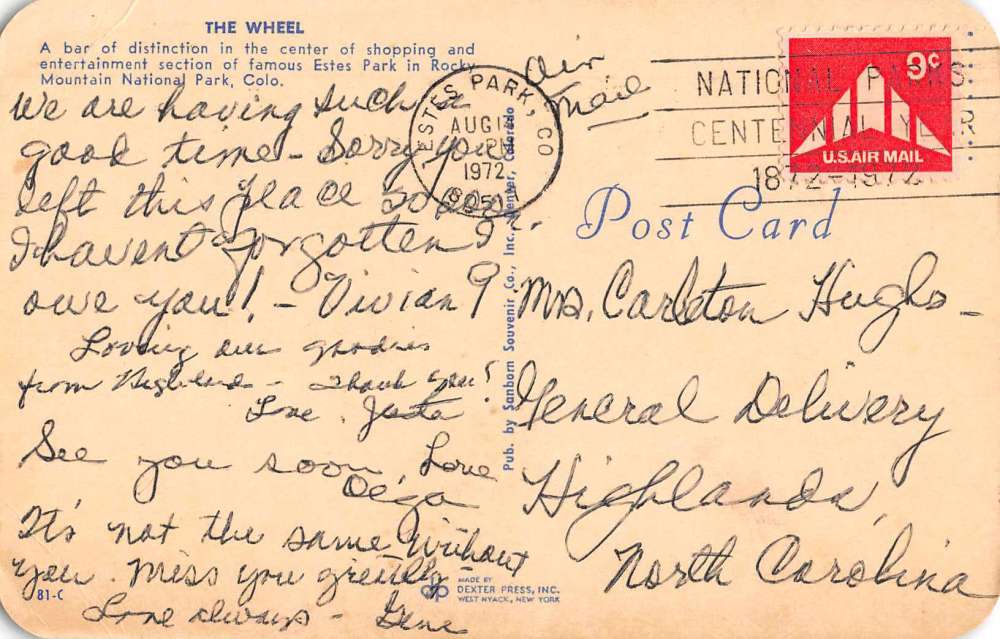 THE WHEEL
A bar of distinction in the center of shopping and
entertainment section of famous Estes Park in Rocky
Mountain National Park, Colo.
Air
Mail
ESTES PARK, CO
AUG
PM
1972
NATIONAL PARKS
CENTENNIAL YEAR
1872-1972
9c
U.S. AIR MAIL
We are having such a
good time - Sorry you
left this place so soon.
I havent forgotten I
owe you! - Vivian
Loving our goodies
from Highlands - Thank you!
Love
See you soon, Love
It's not the same without
you. Miss you greatly -
Love always - Gene
Post Card
Mrs. Carleton Hughs -
General Delivery
Highlands,
North Carolina
Pub. by Sanborn Souvenir Co., Inc., Denver, Colorado
81-C
MADE BY
DEXTER PRESS, INC.
WEST NYACK, NEW YORK